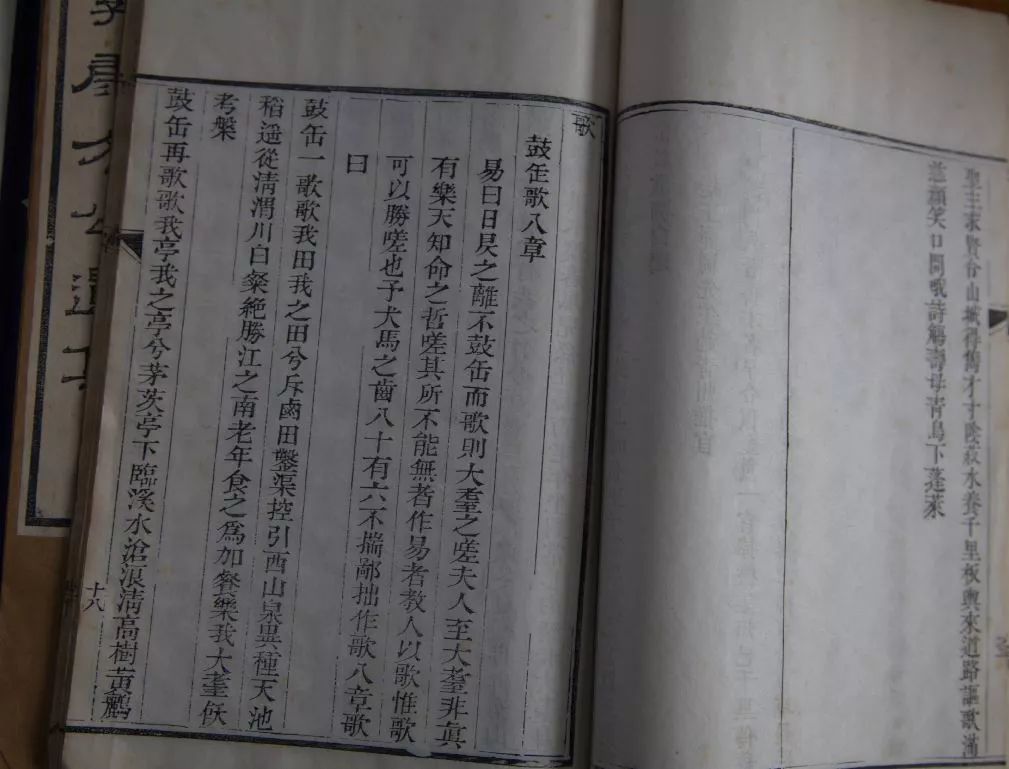 聖主求賢谷山
得
才寸陰
水養千里板輿來道路謳歌滿
慈顏笑口開哦詩觴壽母青鳥下蓬萊
歌
鼓缶歌八章
易曰日昃之離不鼓缶而歌則大耋之嗟夫人至大耋非眞
有樂天知命之哲嗟其所不能無者作易者教人以歌惟歌
可以勝嗟也予犬馬之齒八十有六不揣鄙拙作歌八章歌
曰
鼓缶一歌歌我田我之田兮斥鹵田鑿渠控引西山泉異種天池
稻遥從清渭川白粲絶勝江之南老年食之爲加餐樂我大耋俟
考槃
鼓缶再歌歌我亭我之亭兮茅茨亭下臨溪水滄浪清高樹黃鸝
十八